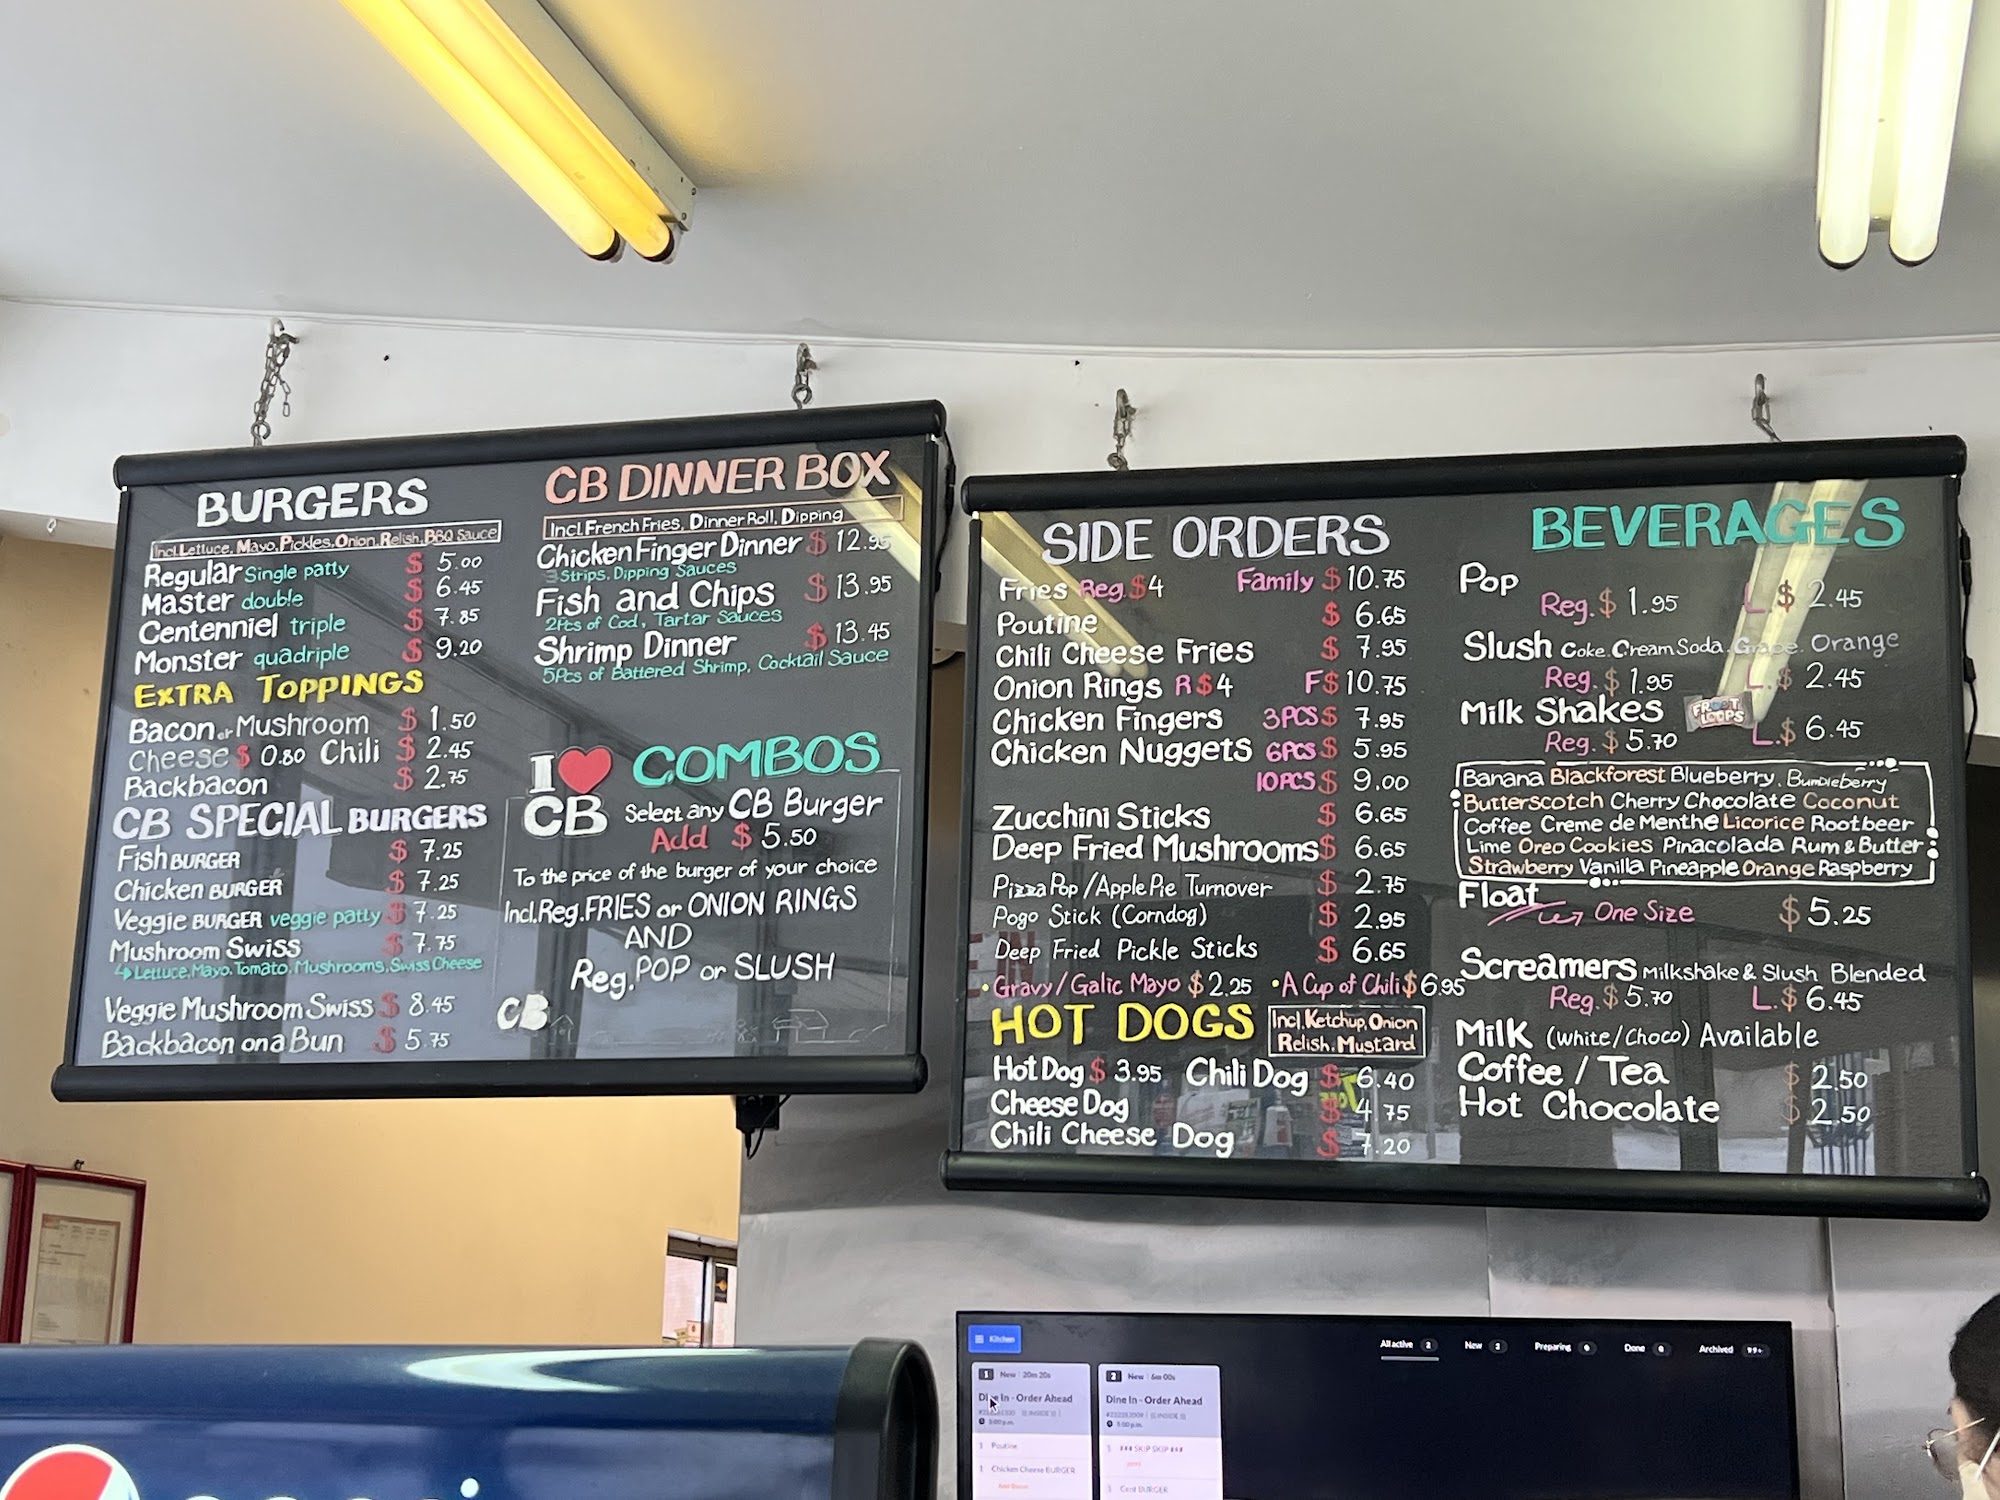 BURGERS
Incl. Lettuce, Mayo, Pickles, Onion, Relish, BBQ Sauce
Regular Single patty $ 5.00
Master double $ 6.45
Centenniel triple $ 7.85
Monster quadriple $ 9.20
EXTRA TOPPINGS
Bacon or Mushroom $ 1.50
Cheese $ 0.80 Chili $ 2.45
Backbacon $ 2.75
CB SPECIAL BURGERS
Fish BURGER $ 7.25
Chicken BURGER $ 7.25
Veggie BURGER veggie patty $ 7.25
Mushroom Swiss $ 7.75
Lettuce, Mayo, Tomato, Mushrooms, Swiss Cheese
Veggie Mushroom Swiss $ 8.45
Backbacon on a Bun $ 5.75
CB DINNER BOX
Incl. French Fries, Dinner Roll, Dipping
Chicken Finger Dinner $ 12.95
3 Strips, Dipping Sauces
Fish and Chips $ 13.95
2Pcs of Cod, Tartar Sauces
Shrimp Dinner $ 13.45
5Pcs of Battered Shrimp, Cocktail Sauce
I CB
COMBOS
Select any CB Burger
Add $ 5.50
To the price of the burger of your choice
Incl. Reg. FRIES or ONION RINGS
AND
Reg. POP or SLUSH
CB
SIDE ORDERS
Fries Reg. $4 Family $ 10.75
Poutine $ 6.65
Chili Cheese Fries $ 7.95
Onion Rings R $4 F $ 10.75
Chicken Fingers 3PCS $ 7.95
Chicken Nuggets 6PCS $ 5.95
10PCS $ 9.00
Zucchini Sticks $ 6.65
Deep Fried Mushrooms $ 6.65
Pizza Pop / Apple Pie Turnover $ 2.75
Pogo Stick (Corndog) $ 2.95
Deep Fried Pickle Sticks $ 6.65
• Gravy / Galic Mayo $ 2.25 • A Cup of Chili $ 6.95
HOT DOGS
Incl. Ketchup, Onion
Relish, Mustard
Hot Dog $ 3.95 Chili Dog $ 6.40
Cheese Dog $ 4.75
Chili Cheese Dog $ 7.20
BEVERAGES
Pop
Reg. $ 1.95 L. $ 2.45
Slush Coke. Cream Soda. Grape. Orange
Reg. $ 1.95 L. $ 2.45
Milk Shakes FROOT LOOPS
Reg. $ 5.70 L. $ 6.45
Banana Blackforest Blueberry, Bumbleberry
Butterscotch Cherry Chocolate Coconut
Coffee Creme de Menthe Licorice Rootbeer
Lime Oreo Cookies Pinacolada Rum & Butter
Strawberry Vanilla Pineapple Orange Raspberry
Float
One Size $ 5.25
Screamers Milkshake & Slush Blended
Reg. $ 5.70 L. $ 6.45
Milk (white/choco) Available
Coffee / Tea $ 2.50
Hot Chocolate $ 2.50
Kitchen
All active 2 New 2 Preparing 0 Done 0 Archived 99+
1 New 20m 20s
Dine In - Order Ahead
5:00 p.m.
1 Poutine
1 Chicken Cheese BURGER
2 New 6m 00s
Dine In - Order Ahead
5:00 p.m.
1 ### SKIP SKIP ###